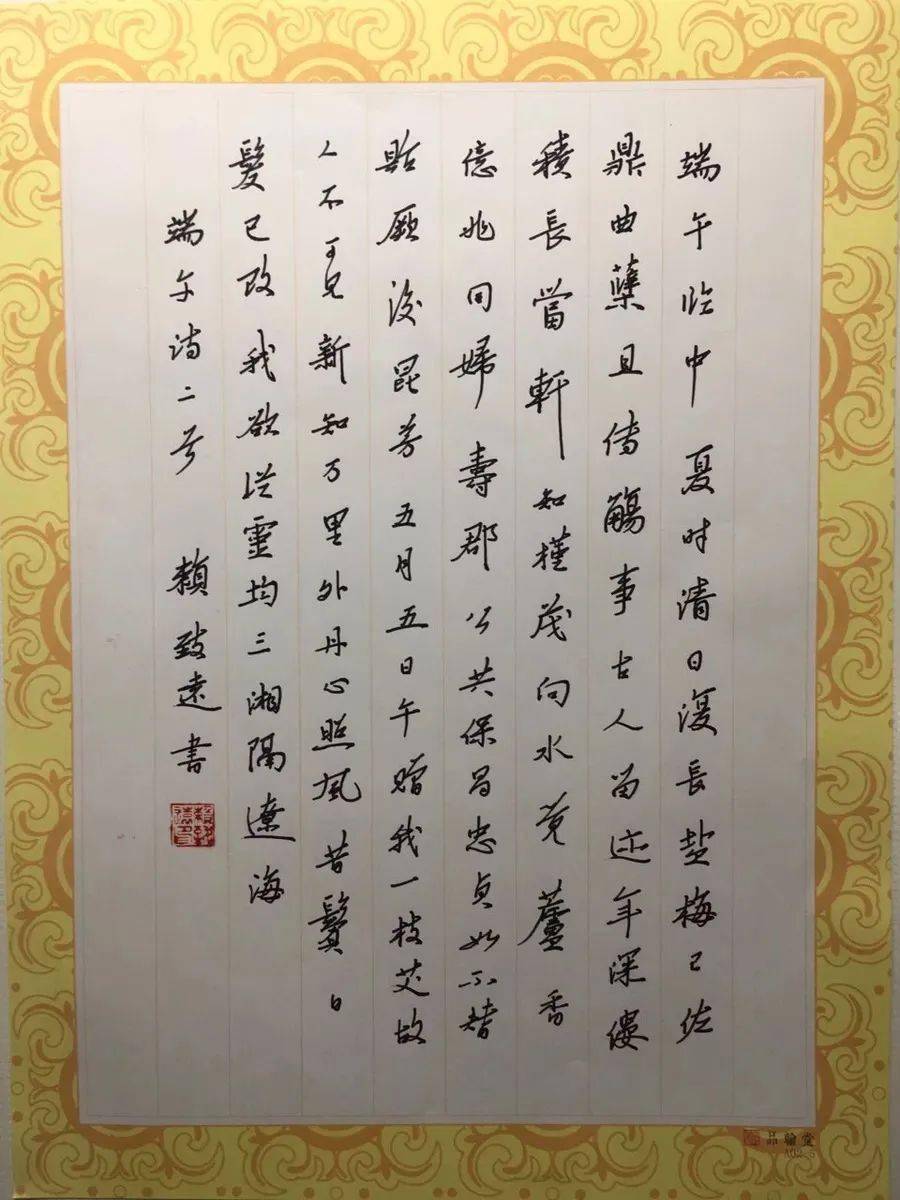 端午临中夏时清日復長盐梅已佐
鼎曲蘖且傳觴事古人留迹年深縷
積長當軒知槿茂向水覚蘆香
億兆同婦壽郡公共保昌忠貞如不替
貽厥後昆芳五月五日午贈我一枝艾故
人不可見新知万里外丹心照風昔鬢日
髮已改我欲從靈均三湘隔遼海
端午诗二首 賴致遠書
品翰堂